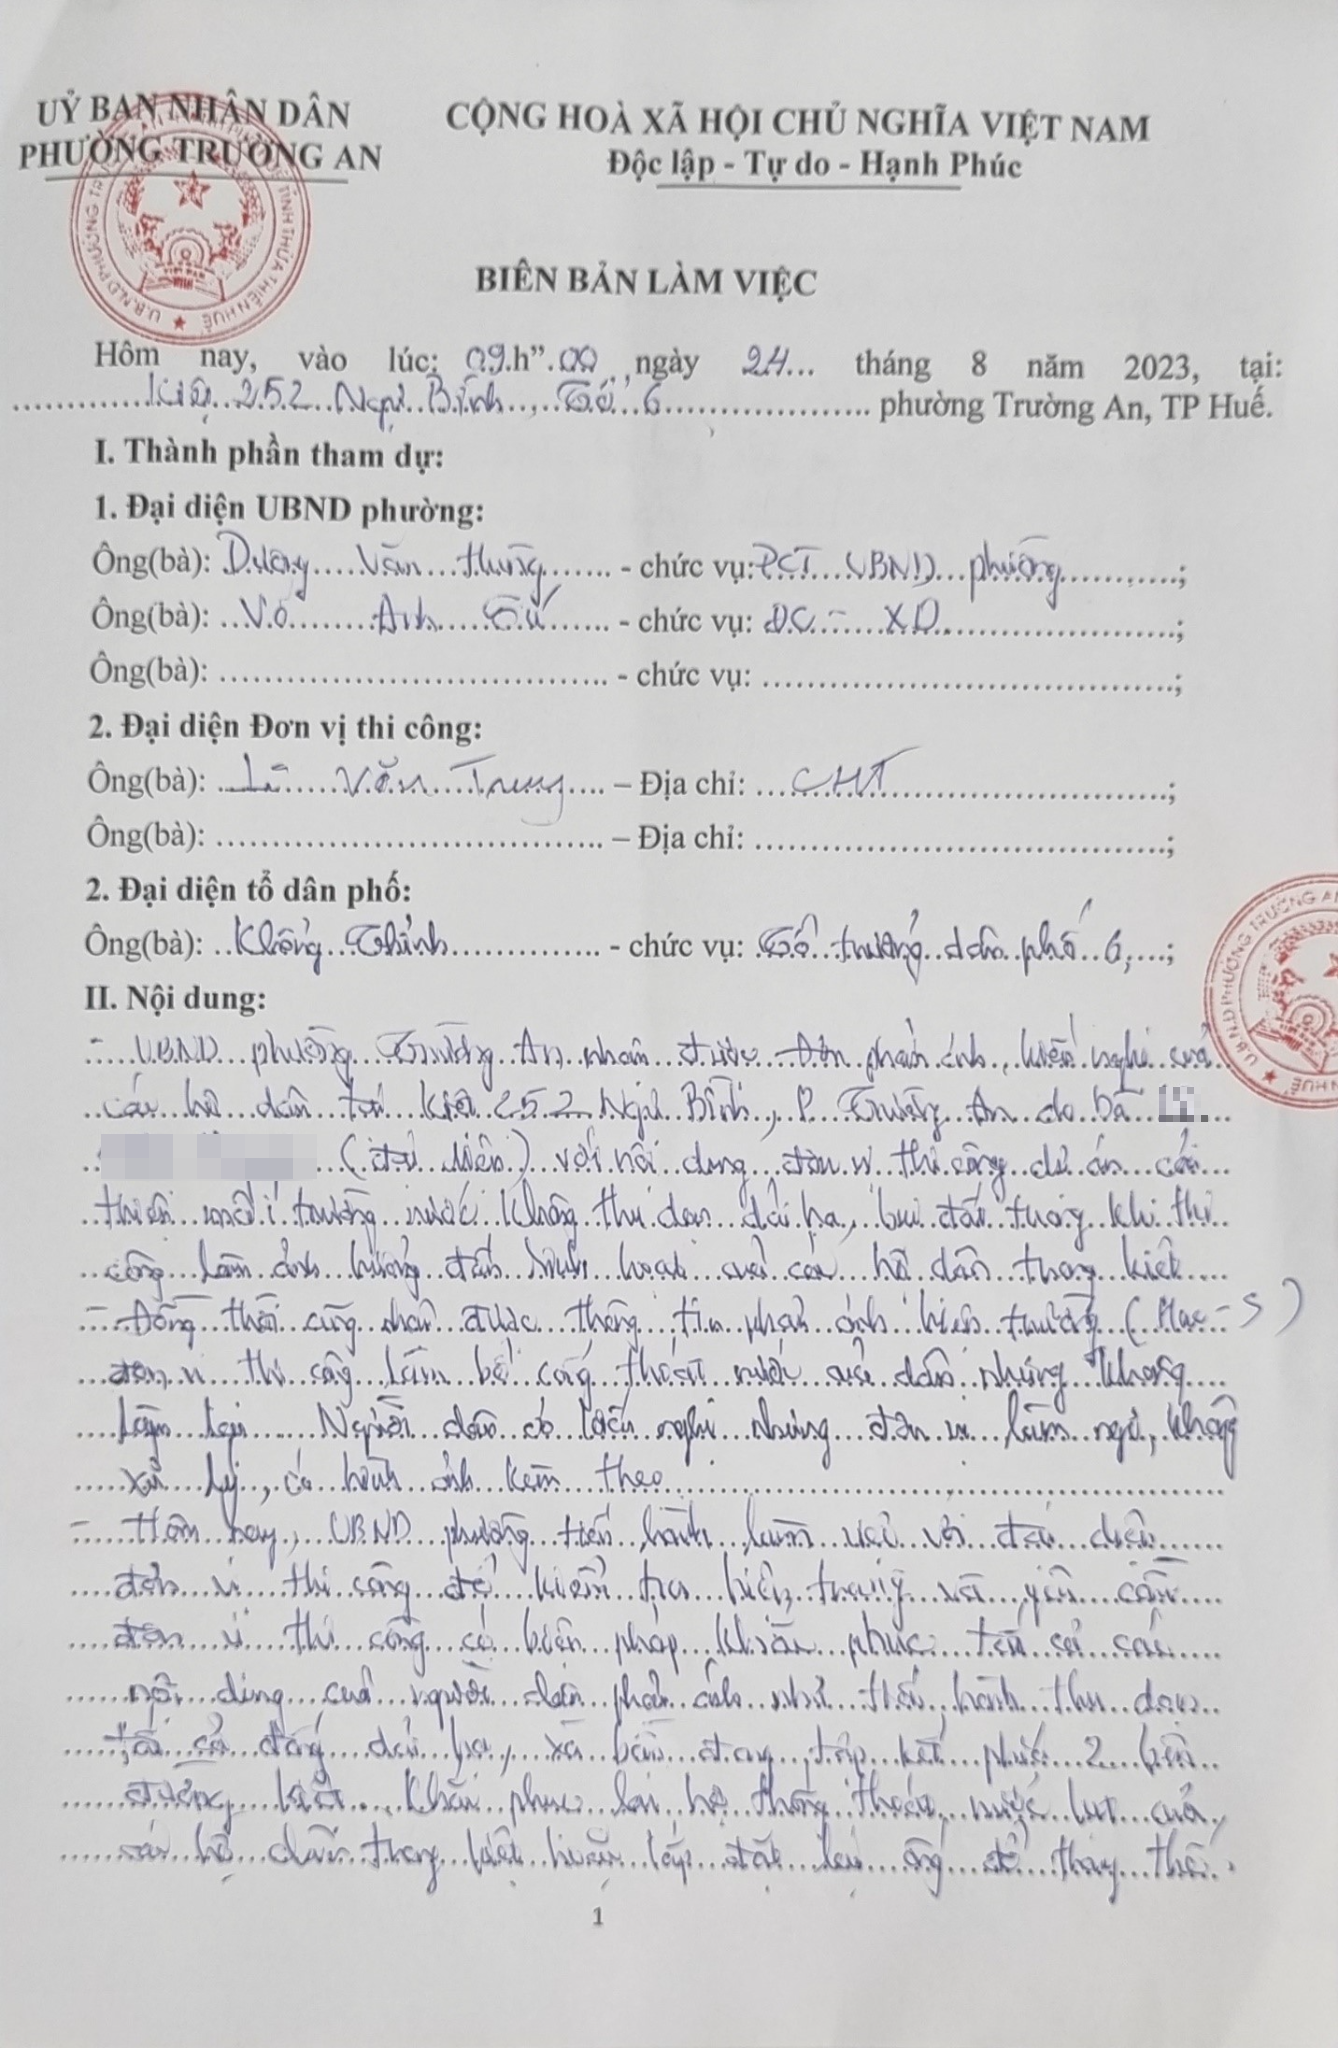 UỶ BAN NHÂN DÂN
PHƯỜNG TRƯỜNG AN
CỘNG HOÀ XÃ HỘI CHỦ NGHĨA VIỆT NAM
Độc lập - Tự do - Hạnh Phúc
BIÊN BẢN LÀM VIỆC
Hôm nay, vào lúc: 09.h".00 ,ngày 24... tháng 8 năm 2023, tại:
Kiệt 252 Ngự Bình, Tổ 6 phường Trường An, TP Huế.
I. Thành phần tham dự:
1. Đại diện UBND phường:
Ông(bà): Dương Văn Thường - chức vụ: PCT UBND phường;
Ông(bà): Võ Anh Tú - chức vụ: ĐC - XD;
Ông(bà): - chức vụ: ;
2. Đại diện Đơn vị thi công:
Ông(bà): Văn Trung – Địa chỉ: CHT;
Ông(bà): – Địa chỉ: ;
2. Đại diện tổ dân phố:
Ông(bà): Khổng Thỉnh - chức vụ: Tổ trưởng dân phố 6,;
II. Nội dung:
- UBND phường Trường An nhận được Đơn phản ánh, kiến nghị của
các hộ dân tại kiệt 252 Ngự Bình, P Trường An do bà
(đại diện) với nội dung đơn vị thi công dự án cải
thiện môi trường nước không thu dọn đất đá, bụi đất trong khi thi
công làm ảnh hưởng đến sinh hoạt của các hộ dân trong kiệt
- Đồng thời cũng nhận được thông tin phản ánh hiện trường (Hue-S)
đơn vị thi công làm bể cống thoát nước của dân nhưng không
làm lại. Người dân có kiến nghị nhưng đơn vị làm ngơ, không
xử lý, có hình ảnh kèm theo
- Hôm nay, UBND phường tiến hành làm việc với đại diện
đơn vị thi công để kiểm tra hiện trạng và yêu cầu
đơn vị thi công có biện pháp khắc phục tất cả các
nội dung của người dân phản ánh như tiến hành thu dọn
tất cả đống xà bần đang tập kết phía 2 bên
đường kiệt. Khắc phục lại hệ thống thoát nước của
các hộ dân trong kiệt hoặc lắp đặt lại ống để thay thế.
1